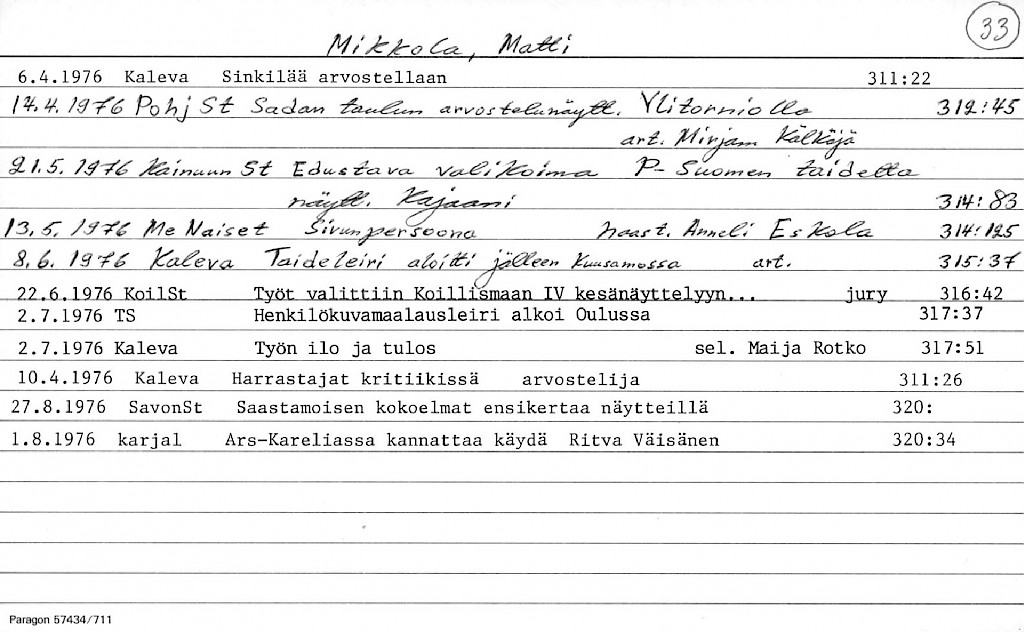 33
Mikkola, Matti
6.4.1976 Kaleva Sinkilää arvostellaan 311:22
14.4.1976 Pohj St Sadan taulun arvostelunäytt. Ylitorniolla 312:45
art. Mirjam Kälköjä
21.5.1976 Kainuun St Edustava valikoima P-Suomen taidetta
näytt. Kajaani 314:83
13.5.1976 Me Naiset Sivunpersoona haast. Anneli Eskola 314:125
8.6.1976 Kaleva Taideleiri aloitti jälleen Kuusamossa art. 315:37
22.6.1976 KoilSt Työt valittiin Koillismaan IV kesänäyttelyyn... jury 316:42
2.7.1976 TS Henkilökuvamaalausleiri alkoi Oulussa 317:37
2.7.1976 Kaleva Työn ilo ja tulos sel. Maija Rotko 317:51
10.4.1976 Kaleva Harrastajat kritiikissä arvostelija 311:26
27.8.1976 SavonSt Saastamoisen kokoelmat ensikertaa näytteillä 320:
1.8.1976 karjal Ars-Kareliassa kannattaa käydä Ritva Väisänen 320:34
Paragon 57434/711